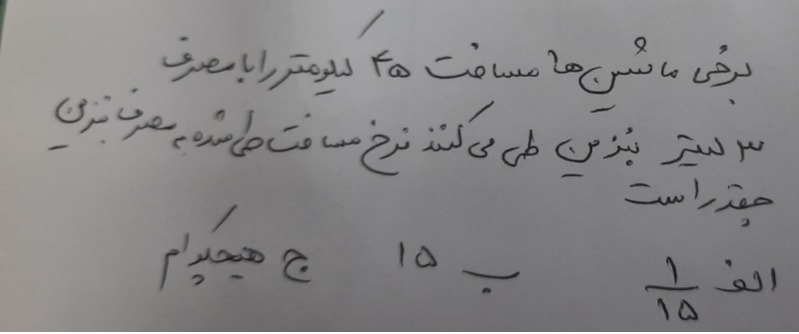 برخی ماشین ها مسافت ۴۵ کیلومتر را با مصرف
۳ لیتر بنزین طی می کنند نرخ مسافت طی شده به مصرف بنزین
چقدر است
الف ۱/۱۵ ب ۱۵ ج هیچکدام